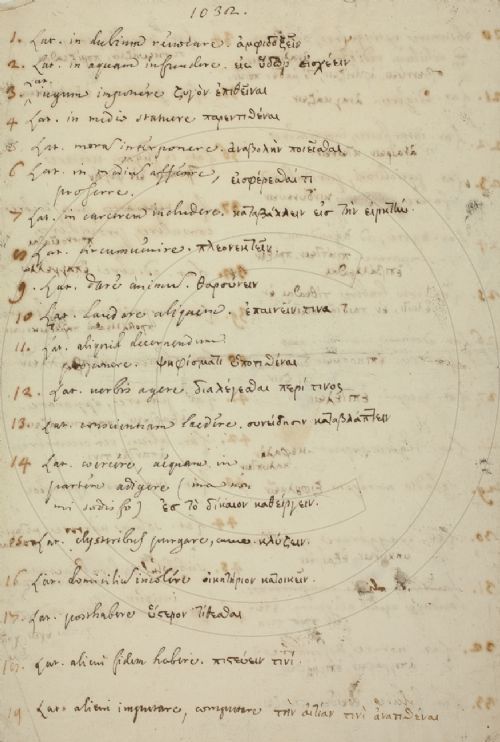 1032.
1. Lat. in dubium revocare ἀμφιδοξεῖν
2. Lat. in aquam infundere. εἰς ὕδωρ εἰσχέειν
Lat.
3. iugum imponere ζυγὸν ἐπιθεῖναι
4 Lat. in medio statuere παρεντιθέναι
5 Lat. moras interponere. ἀναβολὴν ποιεῖσθαι
6 Lat. in medium afferre, εἰσφέρεσθαι τι
proferre.
7 Lat. in carcerem includere. καταβάλλειν εἰς τὴν εἱρκτήν.
8 Lat. circumvenire. πλεονεκτεῖν.
9. Lat. dare animum. θαρσύνειν
10 Lat. laudare aliquem. ἐπαινεῖν τινα
11. Lat. aliquid decernendum
proponere. ψηφίσματι ὑποτιθέναι
12. Lat. verbis agere. διαλέγεσθαι περί τινος
13. Lat. conscientiam laedere. συνείδησιν καταβλάπτειν
14 Lat. coercere, aequam in
partem adigere
ἐς τὸ δίκαιον καθείργειν.
Lat. clysteribus purgare, κλύζειν.
16 Lat. domicilio incolere οἰκητήριον κατοικεῖν.
17. Lat. posthabere ὕστερον τίθεσθαι
18. Lat. alicui fidem habere. πιστεύειν τινί.
19 Lat. alicui imputare, computare τὴν αἰτίαν τινὶ ἀνατιθέναι